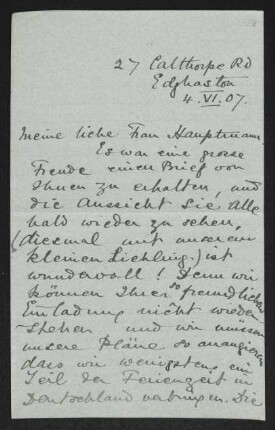 27 Calthorpe Rd
Edgbaston
4. VI. 07.
Meine liche Frau Hauptmann
Es war eine grosse
Freude einen Brief von
Ihnen zu erhalten, und
die Aussicht Sie alle
bald wieder zu sehen,
(diesmal mit unserem
kleinen Liebling) ist
wundervoll! Denn wir
können Ihrer so freundlichen
Einladung nicht wieder-
stehen und wir müssen
unsere Pläne so arrangieren
dass wir wenigstens ein
Teil der Ferienzeit in
Deutschland verbringen. Die